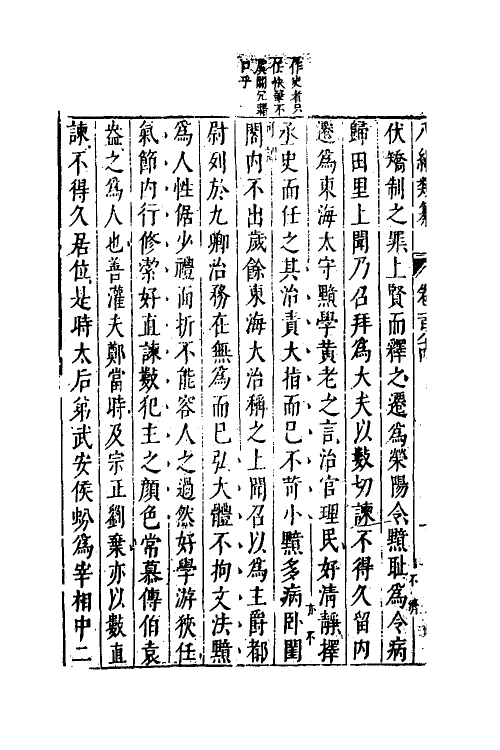 作史者只
任快筆不
冗雜
口乎
八編類纂
卷百
伏矯制之罪上賢而釋之遷為滎陽令黯恥為令病
歸田里上聞乃召拜為大夫以數切諫不得久留内
遷為東海太守黯學黃老之言治官理民好清靜擇
丞史而任之其治責大指而已不苛小黯多病臥閨
閤内不出歲餘東海大治稱之上聞召以為主爵都
尉列於九卿治務在無為而已弘大體不拘文法黯
為人性倨少禮面折不能容人之過然好學游俠任
氣節内行修潔好直諫數犯主之顏色常慕傅伯袁
盎之為人也善灌夫鄭當時及宗正劉棄亦以數直
諫不得久居位是時太后弟武安侯蚡為宰相中二